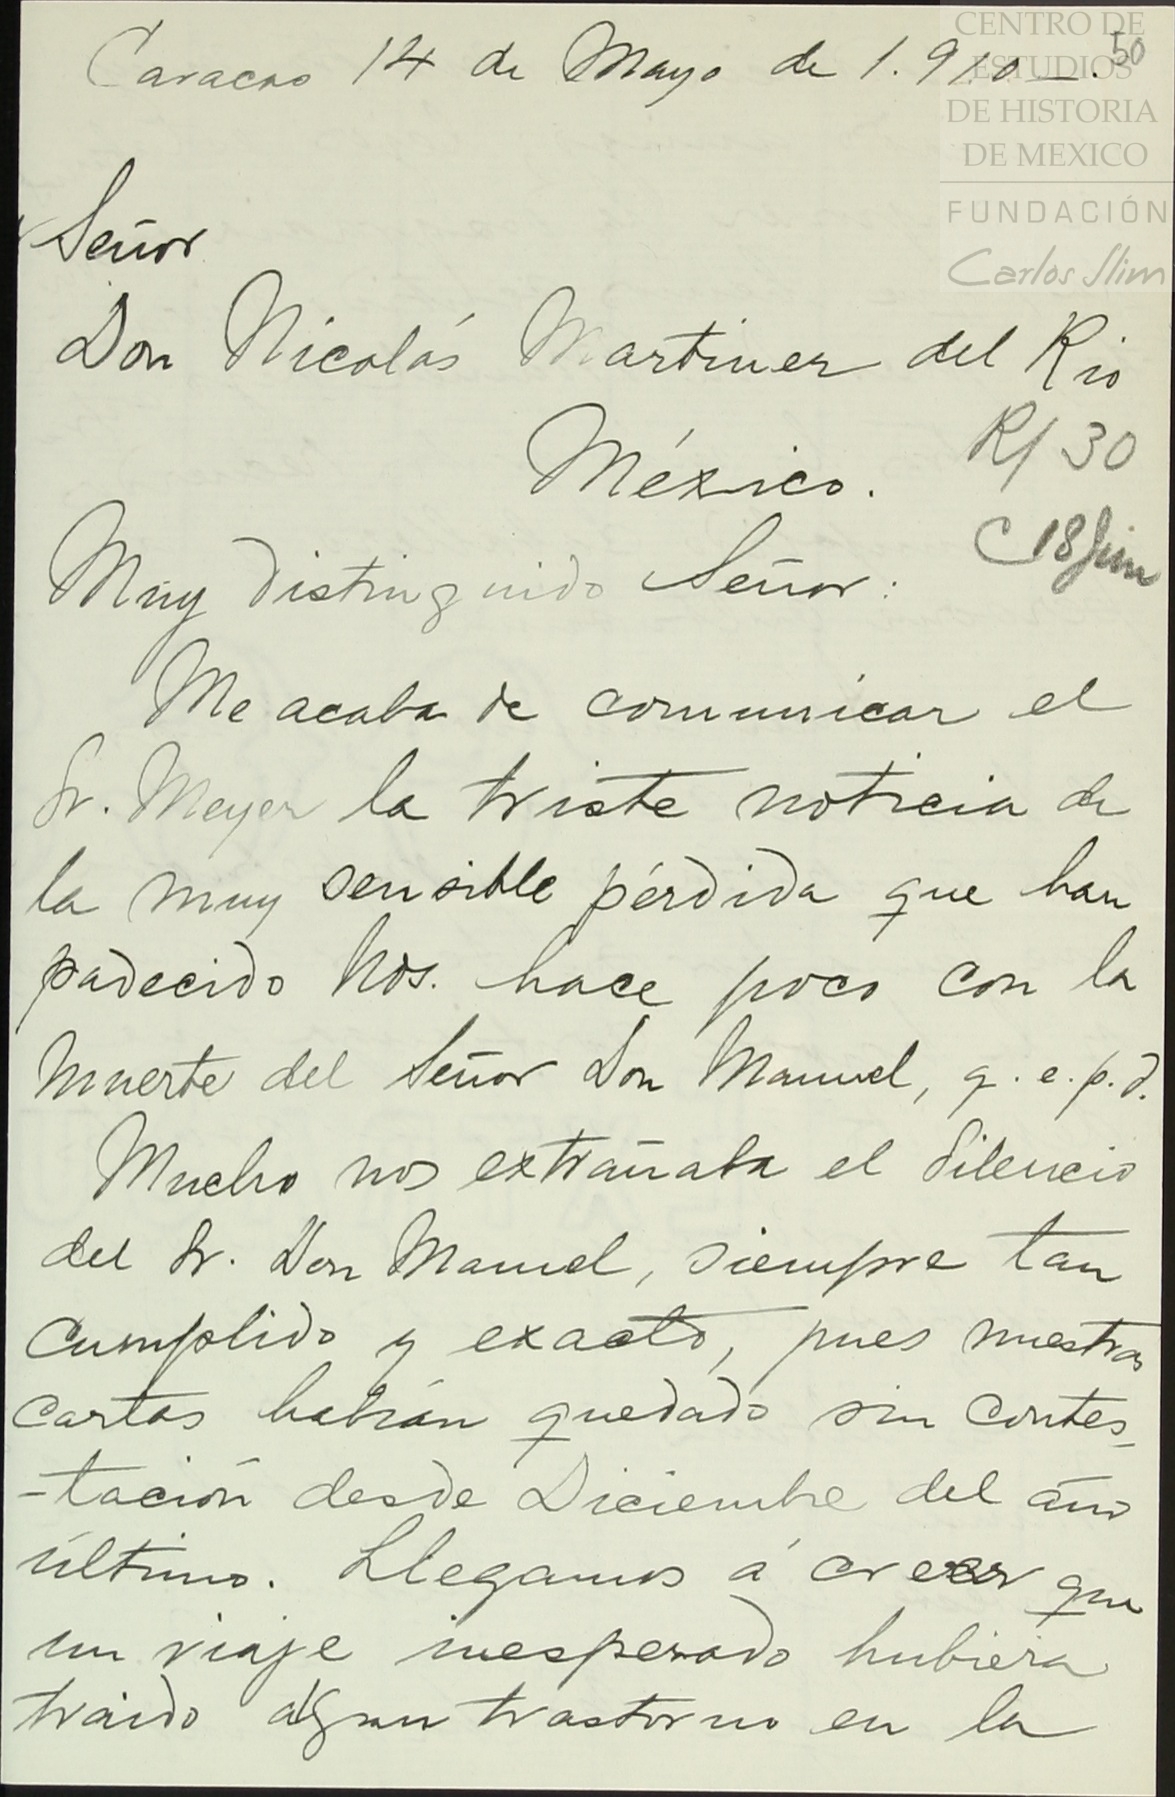 Caracas 14 de Mayo de 1.910 —. 50
CENTRO DE
ESTUDIOS
DE HISTORIA
DE MEXICO
FUNDACIÓN
Carlos Slim
Señor
Don Nicolás Martinez del Rio
México.
R/ 30
C 18 Jun
Muy distinguido Señor:
Me acaba de comunicar el
Sr. Meyer la triste noticia de
la muy sensible pérdida que han
padecido Uds. hace poco con la
muerte del Señor Don Manuel, q. e. p. d.
Mucho nos extrañaba el silencio
del Sr. Don Manuel, siempre tan
cumplido y exacto, pues nuestras
cartas habían quedado sin contes-
-tación desde Diciembre del año
último. Llegamos á creer que
un viaje inesperado hubiera
traido algun trastorno en la